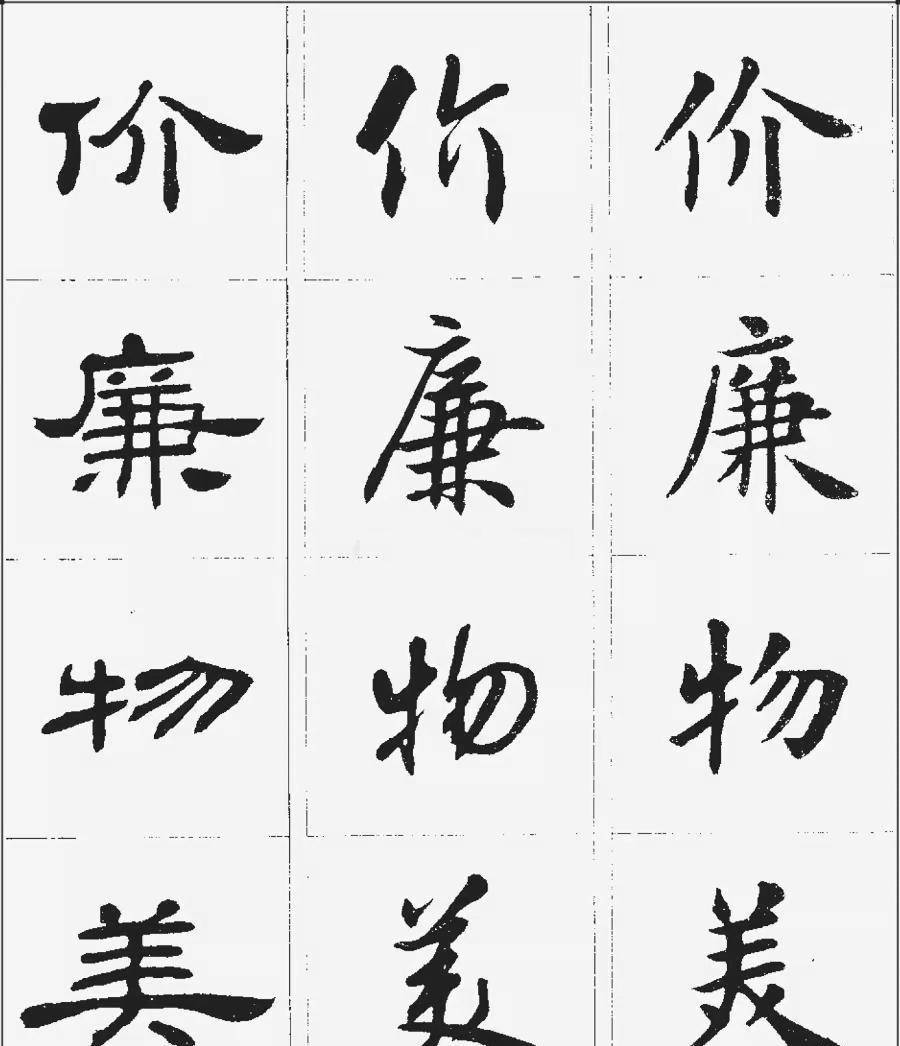 价 价 价
廉 廉 廉
物 物 物
美 美 美